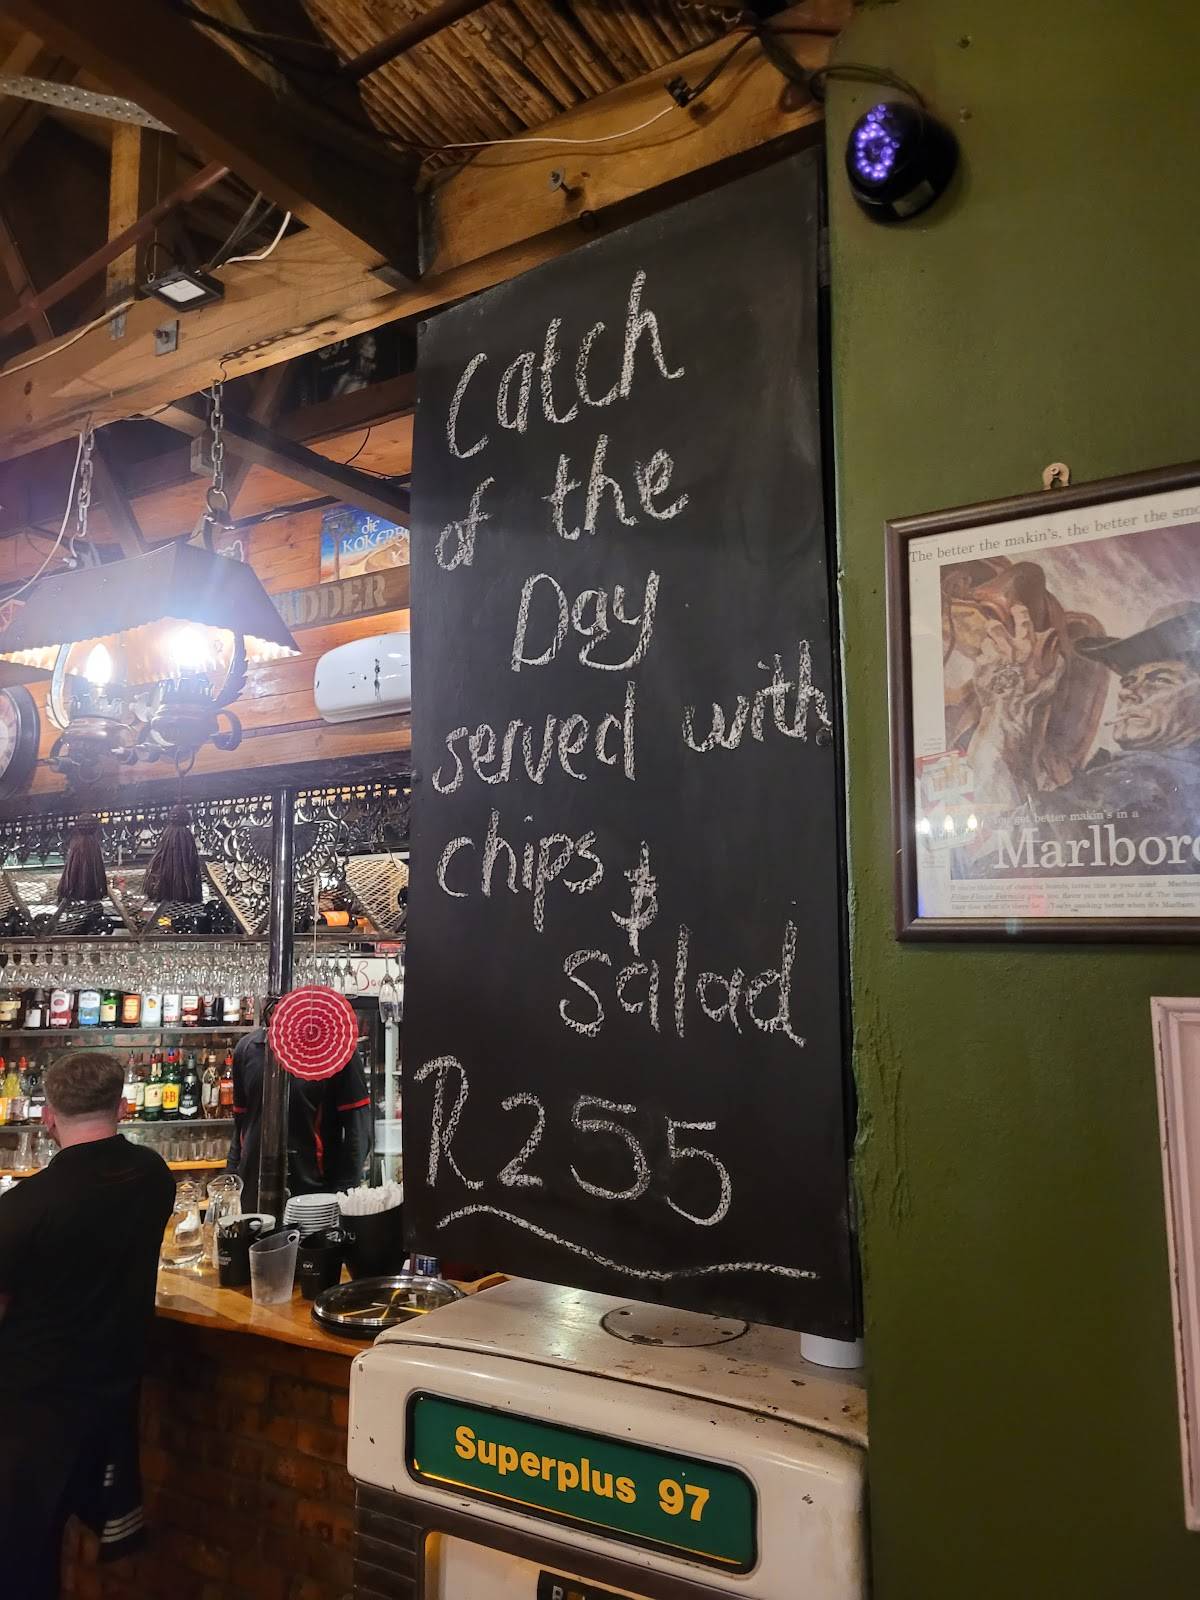 Catch
of the
Day
served with
chips &
Salad
R255
Superplus 97
The better the makin's, the better the smo
You get better makin's in a
Marlboro
die
KOKERB
ADDER